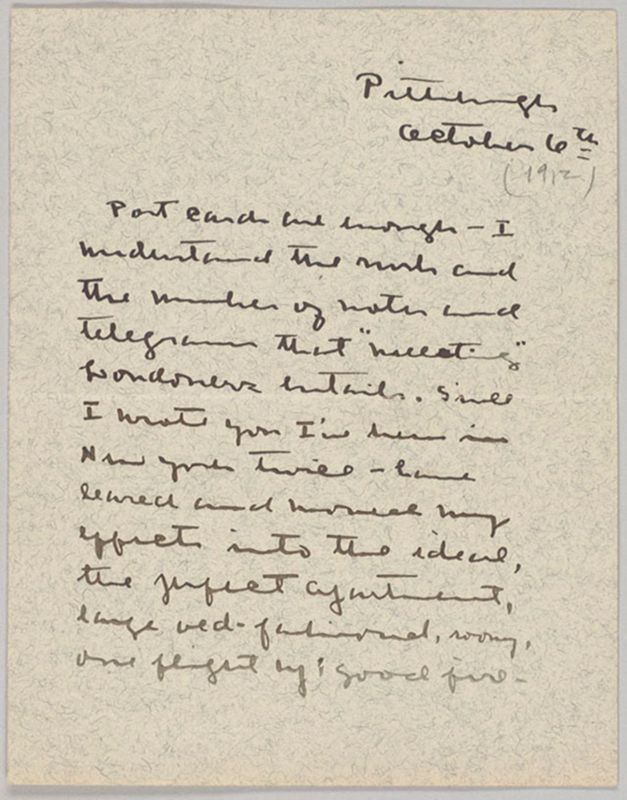 Pittsburgh
October 6th
(1912)
Post cards are enough – I
understand the work and
the number of notes and
telegrams that "meeting"
Londoners entails. Since
I wrote you I've been in
New York twice – have
leased and moved my
effects into the ideal,
the perfect apartment,
large old-fashioned, roomy,
one flight up; good fire-